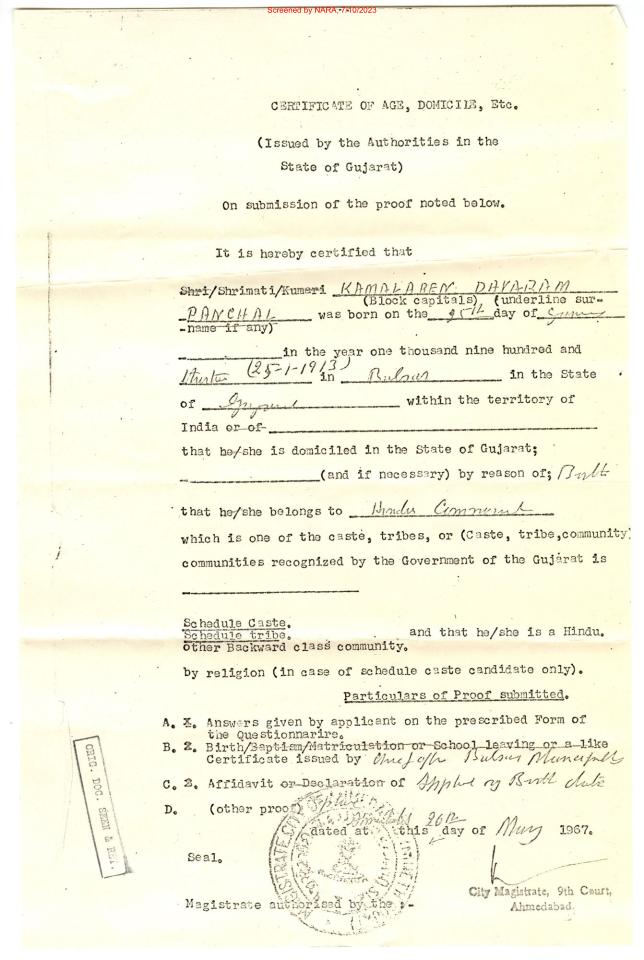 Screened by NARA, 7/10/2023
CERTIFICATE OF AGE, DOMICILE, Etc.
(Issued by the Authorities in the
State of Gujarat)
On submission of the proof noted below.
It is hereby certified that
Shri/Shrimati/Kumari KAMALABEN DAYARAM
(Block capitals) (underline sur-
PANCHAL was born on the 25th day of
-name if any)
in the year one thousand nine hundred and
(25-1-1913) in Bulsar in the State
of within the territory of
India or of
that he/she is domiciled in the State of Gujarat;
(and if necessary) by reason of; Birth
that he/she belongs to Hindu
which is one of the caste, tribes, or (Caste, tribe,community)
communities recognized by the Government of the Gujarat is
Schedule Caste.
Schedule tribe. and that he/she is a Hindu.
other Backward class community.
by religion (in case of schedule caste candidate only).
Particulars of Proof submitted.
A. Answers given by applicant on the prescribed Form of
the Questionnarire.
B. 2. Birth/Baptism/Matriculation or School leaving or a like
Certificate issued by Bulsar
C. Affidavit or Declaration of Birth date
D. (other proof)
dated at this 20th day of May 1967.
Seal.
City Magistrate, 9th Court,
Ahmedabad.
Magistrate authorised by the :-
ORIG. DOC. SEEN & RET.